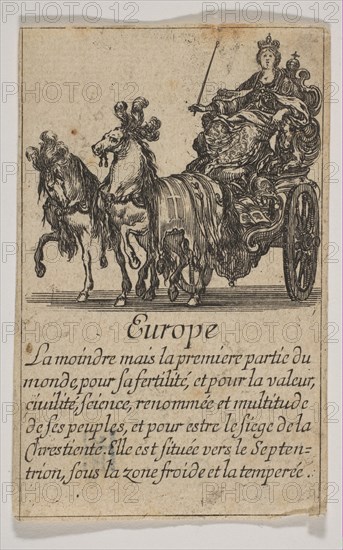 Europe
La moindre mais la premiere partie du
monde, pour sa fertilité, et pour la valeur,
ciuilité, science, renommée et multitude
de ses peuples, et pour estre le siege de la
Chrestienté. Elle est située vers le Septen-
trion, sous la zone froide et la temperée.